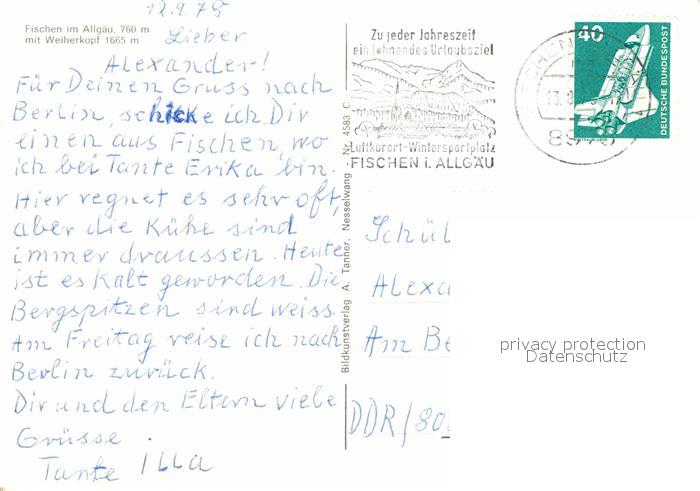 12.9.75
Fischen im Allgäu, 760 m
mit Weiherkopf 1665 m
Lieber
Alexander!
Für Deinen Gruss nach
Berlin, schicke ich Dir
einen aus Fischen, wo
ich bei Tante Erika bin.
Hier regnet es sehr oft,
aber die Kühe sind
immer draussen. Heute
ist es Kalt geworden. Die
Bergspitzen sind weiss.
Am Freitag reise ich nach
Berlin zurück.
Dir und den Eltern viele
Grüsse.
Tante Illa
Bildkunstverlag A. Tanner, Nesselwang Nr. 4583 C
Zu jeder Jahreszeit
ein lohnendes Urlaubsziel
Luftkurort-Wintersportplatz
FISCHEN i. ALLGÄU
40
DEUTSCHE BUNDESPOST
Schül
Alexa
Am Be
DDR/80
privacy protection
Datenschutz